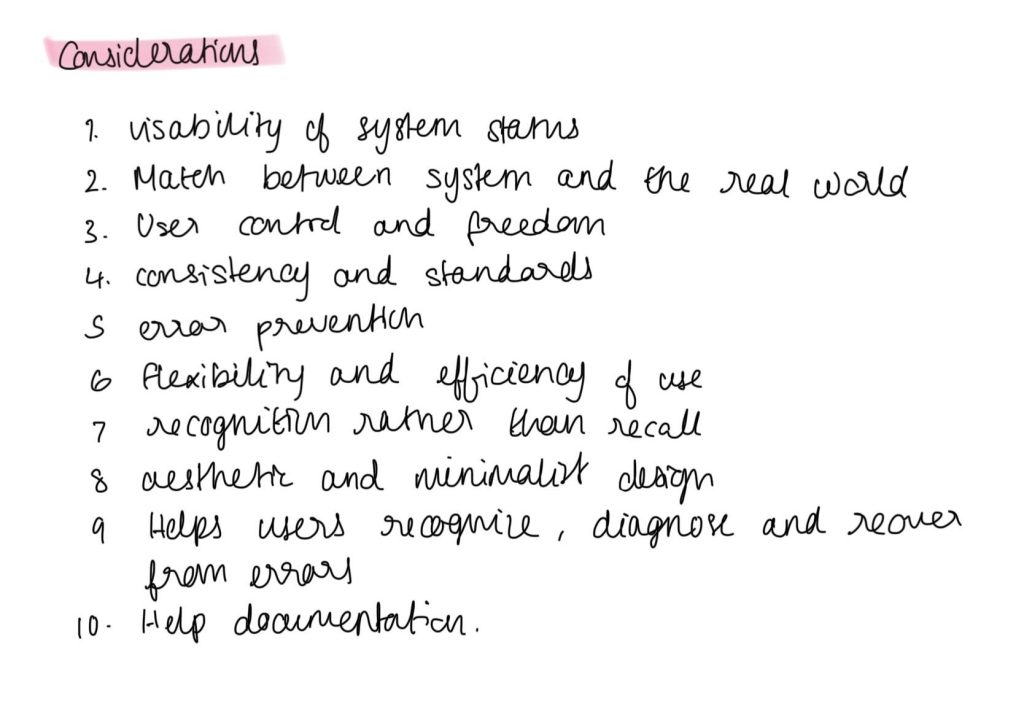 Considerations
1. visability of system status
2. Match between system and the real world
3. User control and freedom
4. consistency and standards
5 error prevention
6 flexibility and efficiency of use
7 recognition rather than recall
8 aesthetic and minimalist design
9 Helps users recognize, diagnose and recover
from errors
10. Help documentation.